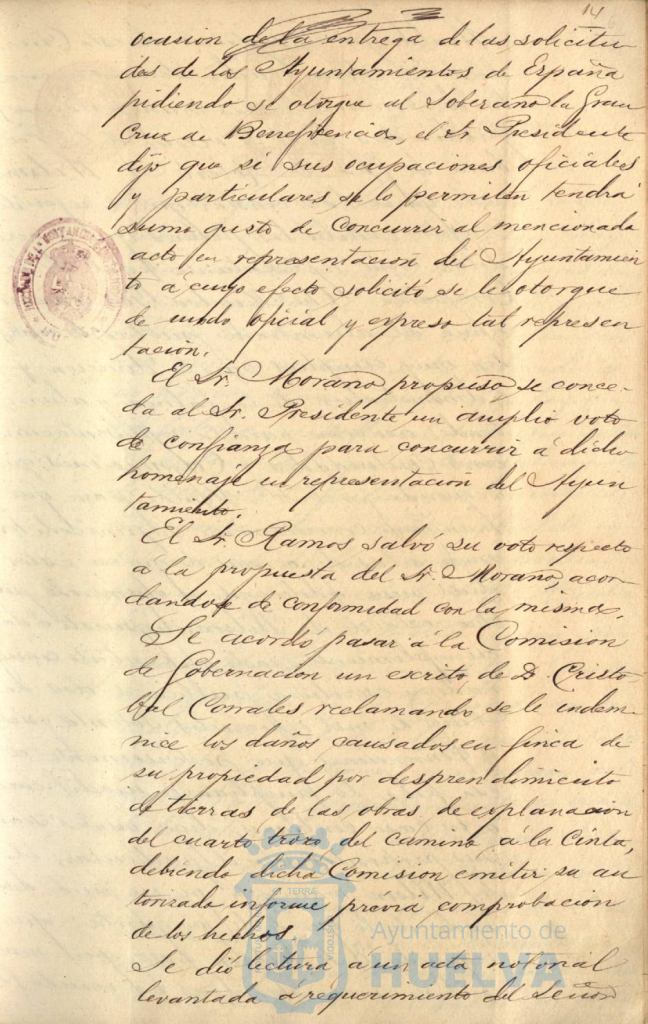 14
ocasion de la entrega de las solicitu
des de los Ayuntamientos de España
pidiendo se otorgue al Soberano la Gran
Cruz de Beneficencia, el Sr Presidente
dijo que si sus ocupaciones oficiales
y particulares se lo permiten tendrá
sumo gusto de concurrir al mencionado
acto en representacion del Ayuntamien
to á cuyo efecto solicitó se le otorgue
de modo oficial y expreso tal represen
tación.
El Sr. Moraño propuso se conce-
da al Sr. Presidente un amplio voto
de confianza para concurrir á dicho
homenaje en representación del Ayun
tamiento.
El Sr. Ramos salvó su voto respecto
á la propuesta del Sr. Moraño, acor-
dandose de conformidad con la misma.
Se acordó pasar á la Comision
de Gobernacion un escrito de D. Cristo-
bal Corrales reclamando se le indem-
nice los daños causados en finca de
su propiedad por desprendimiento
de tierras de las obras de explanacion
del cuarto trozo del camino á la Cinta,
debiendo dicha Comision emitir su au
torizado informe prévia comprobacion
de los hechos.
Se dió lectura a un acta notorial
levantada á requerimiento del Señor
Ayuntamiento de
HUELVA